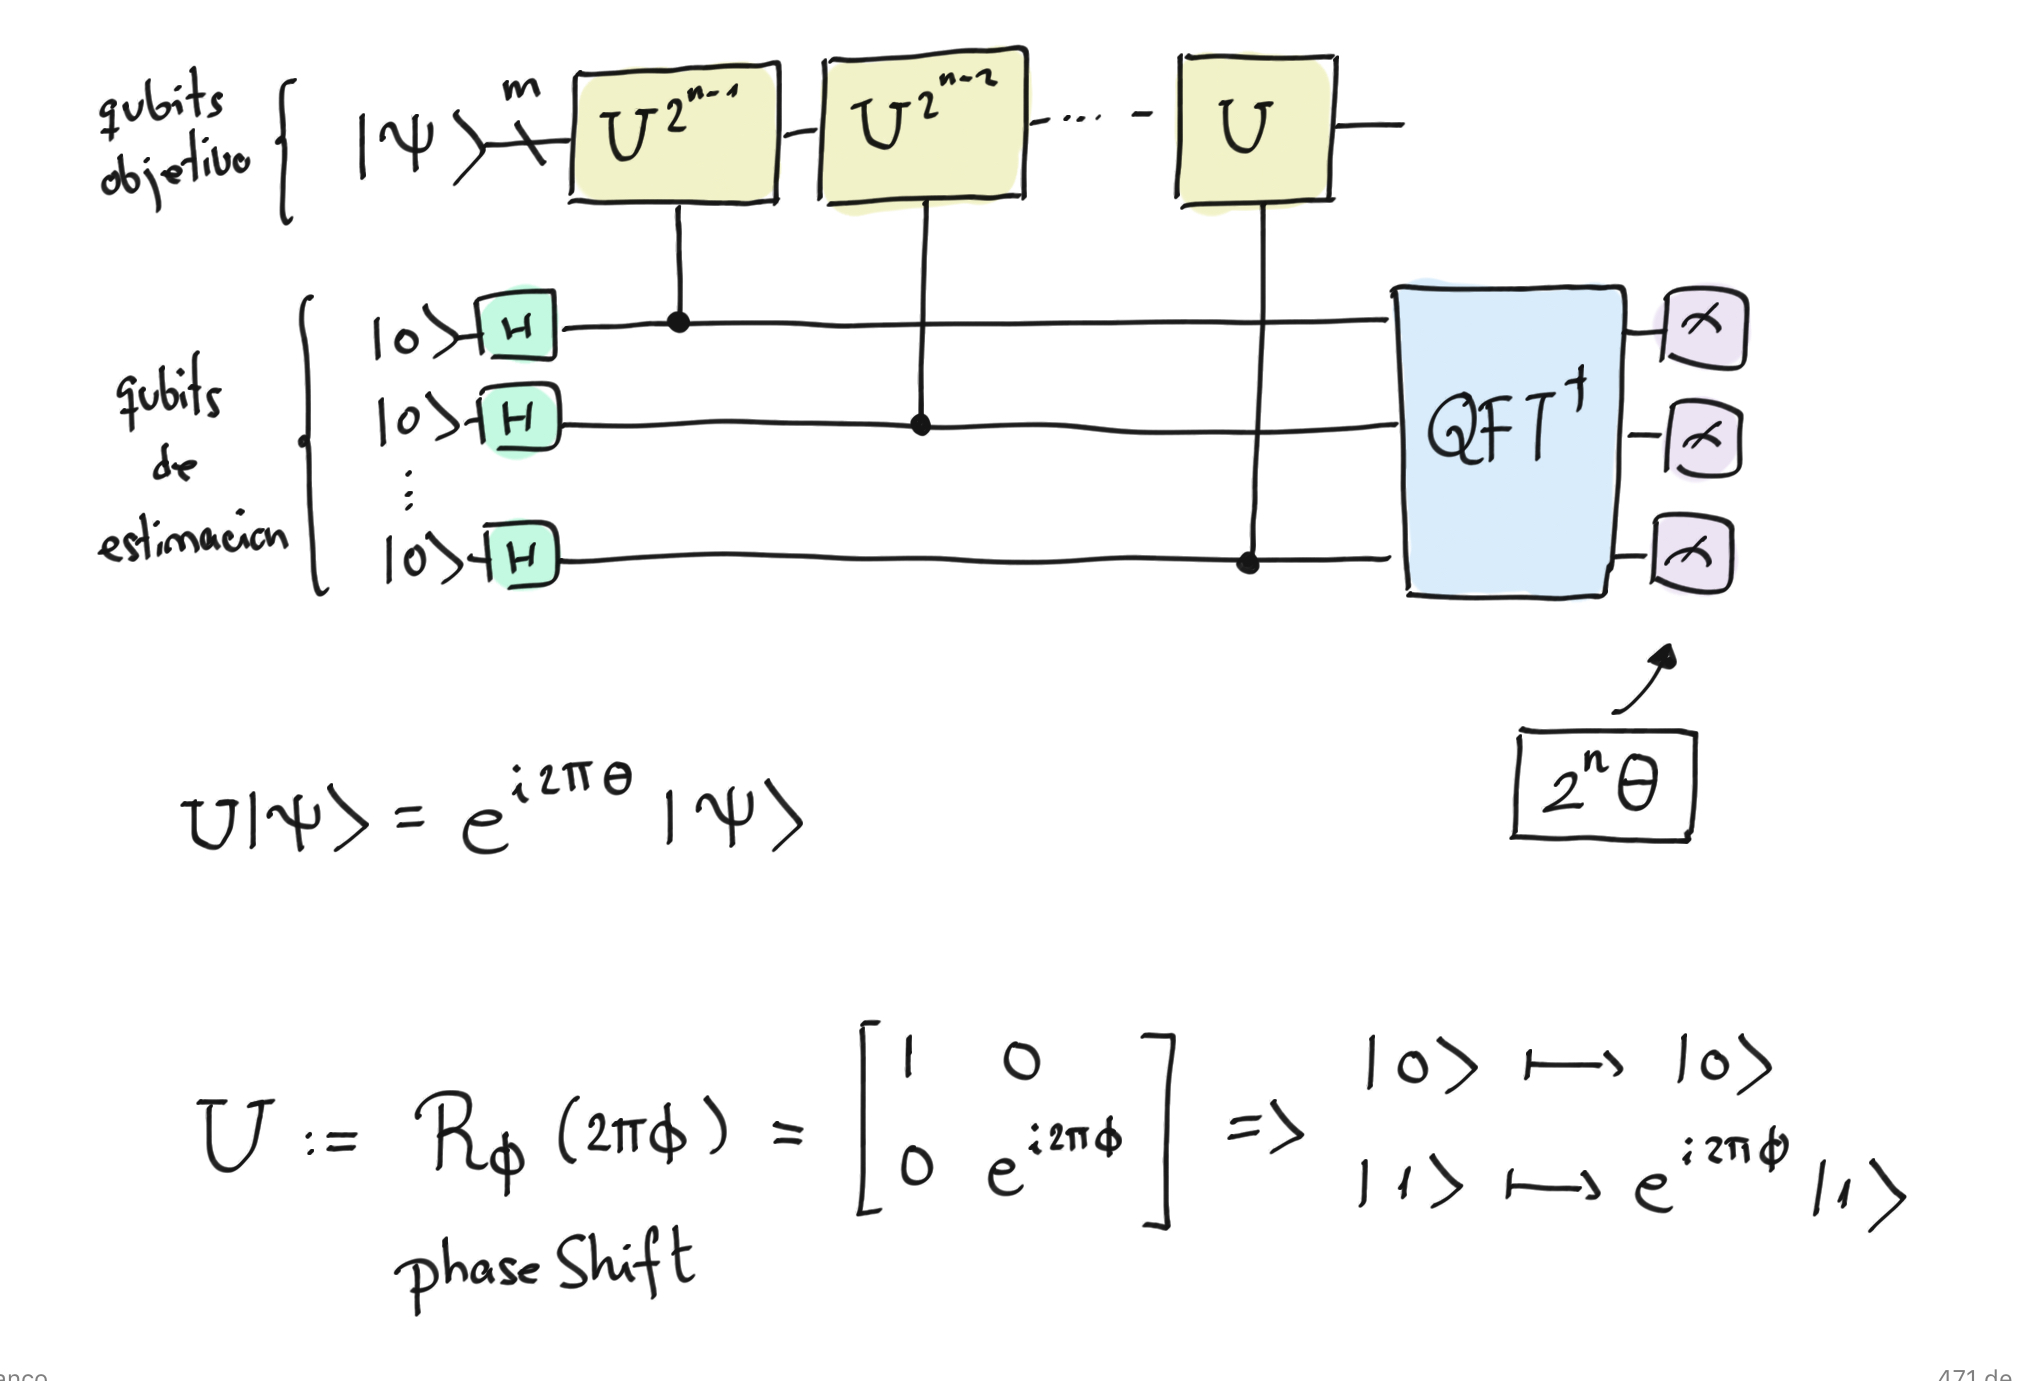 qubits
objetivo
|ψ⟩ m U^2^n-1 U^2^n-2 .... - U
qubits
de
estimacion
|0⟩ H
|0⟩ H
⋮
|0⟩ H
QFT†
2^n θ
U|ψ⟩ = e^i2πθ |ψ⟩
U := R_ϕ (2πϕ) = [1 0; 0 e^i2πϕ] => |0⟩ ⟼ |0⟩
|1⟩ ⟼ e^i2πϕ |1⟩
phase Shift
471 de